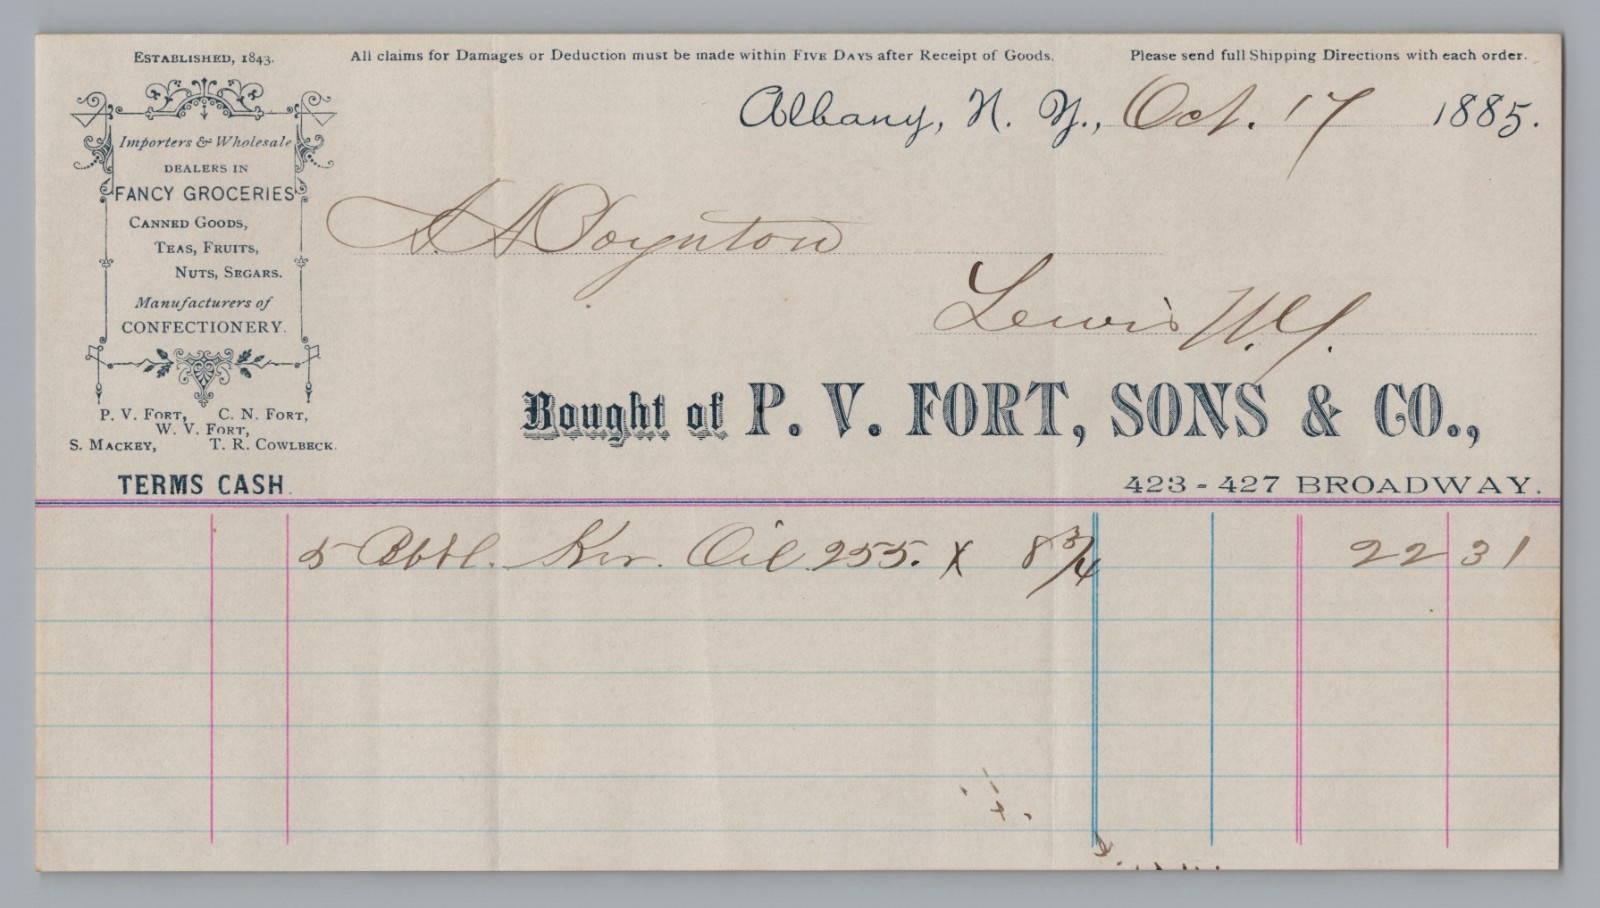 Established, 1843.
All claims for Damages or Deduction must be made within Five Days after Receipt of Goods.
Please send full Shipping Directions with each order.
Albany, N. Y., Oct. 17 1885.
Importers & Wholesale
DEALERS IN
FANCY GROCERIES
Canned Goods,
Teas, Fruits,
Nuts, Segars.
Manufacturers of
CONFECTIONERY.
P. V. Fort, C. N. Fort,
W. V. Fort,
S. Mackey, T. R. Cowlbeck.
TERMS CASH.
Boynton
Lewis N.Y.
Bought of P. V. FORT, SONS & CO.,
423 - 427 BROADWAY.
5 Bbbl. Ker. Oil 255. x 8 3/4 22 31